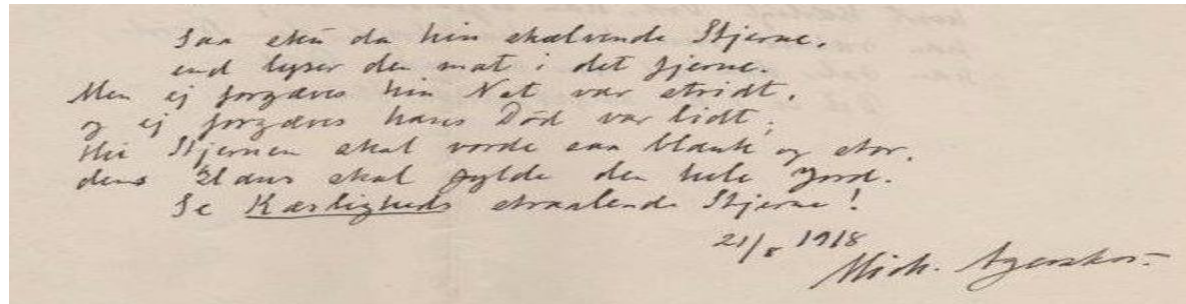 Saa sku da hin skælvende Stjerne,
end lyser den mat i det fjerne.
Men ej forgæves hin Nat var stridt,
og ej forgæves hans Död var lidt;
thi Stjernen skal vorde saa blank og stor,
dens Glans skal fylde den hele Jord.
Se Kærligheds straalende Stjerne!
21/8 1918
Mich. Agerskov.